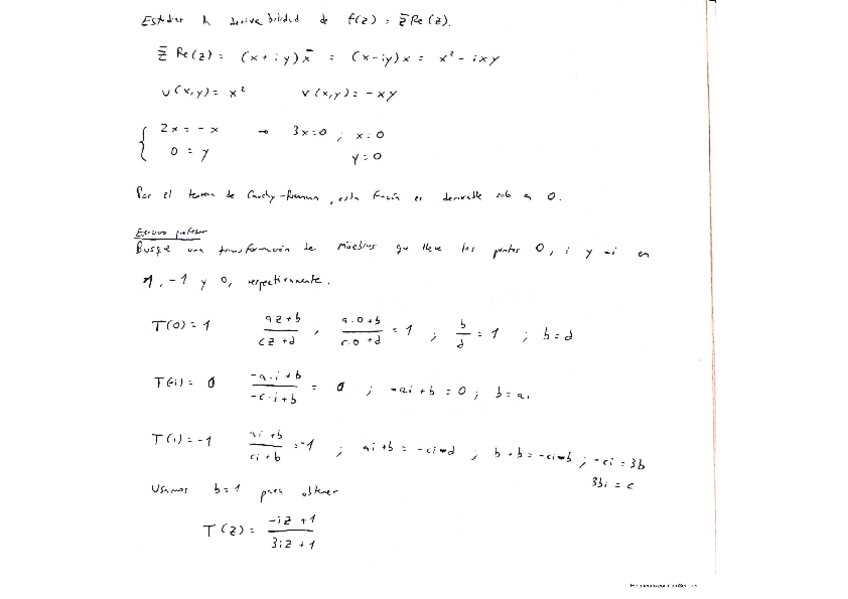 Estudiar la derivabilidad de f(z) = z̄ Re(z).
z̄ Re(z) = (x+iy)‾ x = (x-iy)x = x² - ixy
u(x,y) = x² v(x,y) = -xy
{ 2x = -x → 3x=0 ; x=0
0 = y y=0
Por el teorema de Cauchy-Riemann, esta función es derivable solo en 0.
Busque una transformación de Moebius que lleve los puntos 0, i y -i en
1, -1 y 0, respectivamente.
T(0) = 1 az+b/cz+d , a·0+b/c·0+d = 1 ; b/d = 1 ; b=d
T(-i) = 0 -a·i+b/-c·i+b = 0 ; -ai+b = 0 ; b = ai
T(i) = -1 ai+b/ci+b = -1 ; ai+b = -ci-d ; b+b = -ci-b ; -ci = 3b
3bi = c
Usamos b=1 para obtener
T(z) = -iz+1/3iz+1